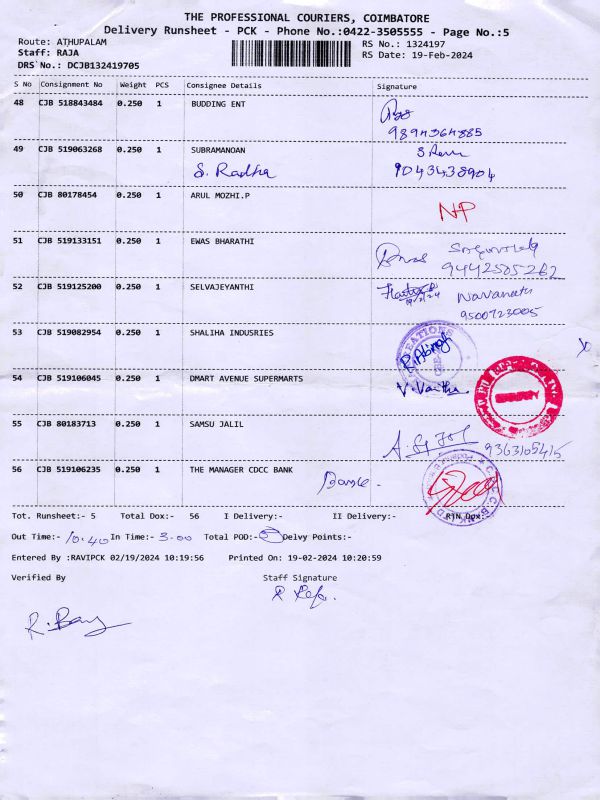 THE PROFESSIONAL COURIERS, COIMBATORE
Delivery Runsheet - PCK - Phone No.:0422-3505555 - Page No.:5
Route: ATHUPALAM
RS No.: 1324197
Staff: RAJA
RS Date: 19-Feb-2024
DRS No.: DCJB132419705
S No Consignment No Weight PCS Consignee Details Signature
48 CJB 518843484 0.250 1 BUDDING ENT
9894364885
49 CJB 519063268 0.250 1 SUBRAMANOAN
S. Radha 9043438904
50 CJB 80178454 0.250 1 ARUL MOZHI.P
NP
51 CJB 519133151 0.250 1 EWAS BHARATHI
9442505262
52 CJB 519125200 0.250 1 SELVAJEYANTHI
Navaneeth
9500723005
53 CJB 519082954 0.250 1 SHALIHA INDUSRIES
54 CJB 519106045 0.250 1 DMART AVENUE SUPERMARTS
V. Vanitha
55 CJB 80183713 0.250 1 SAMSU JALIL
9363105415
56 CJB 519106235 0.250 1 THE MANAGER CDCC BANK
Tot. Runsheet:- 5 Total Dox:- 56 I Delivery:- II Delivery:- RTN Dox:-
Out Time:- 10.40 In Time:- 3.00 Total POD:- Delvy Points:-
Entered By :RAVIPCK 02/19/2024 10:19:56 Printed On: 19-02-2024 10:20:59
Verified By Staff Signature